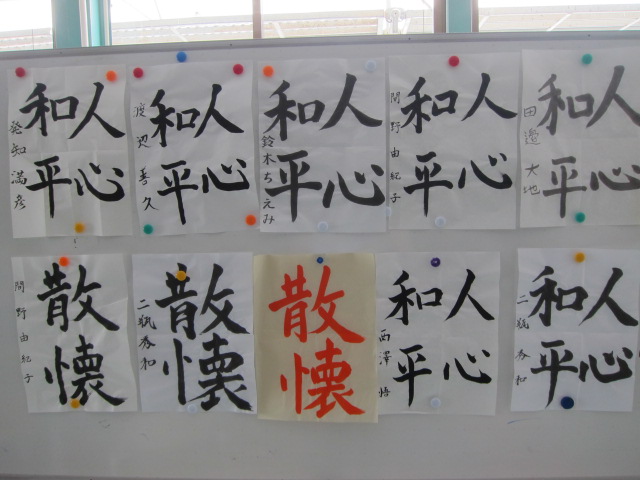 人心
和平
発知満彦
人心
和平
渡辺善久
人心
和平
鈴木ちえみ
人心
和平
間野由紀子
人心
和平
田邊大地
散懐
間野由紀子
散懐
二瓶秀和
散懐
人心
和平
西澤悟
人心
和平
二瓶秀和